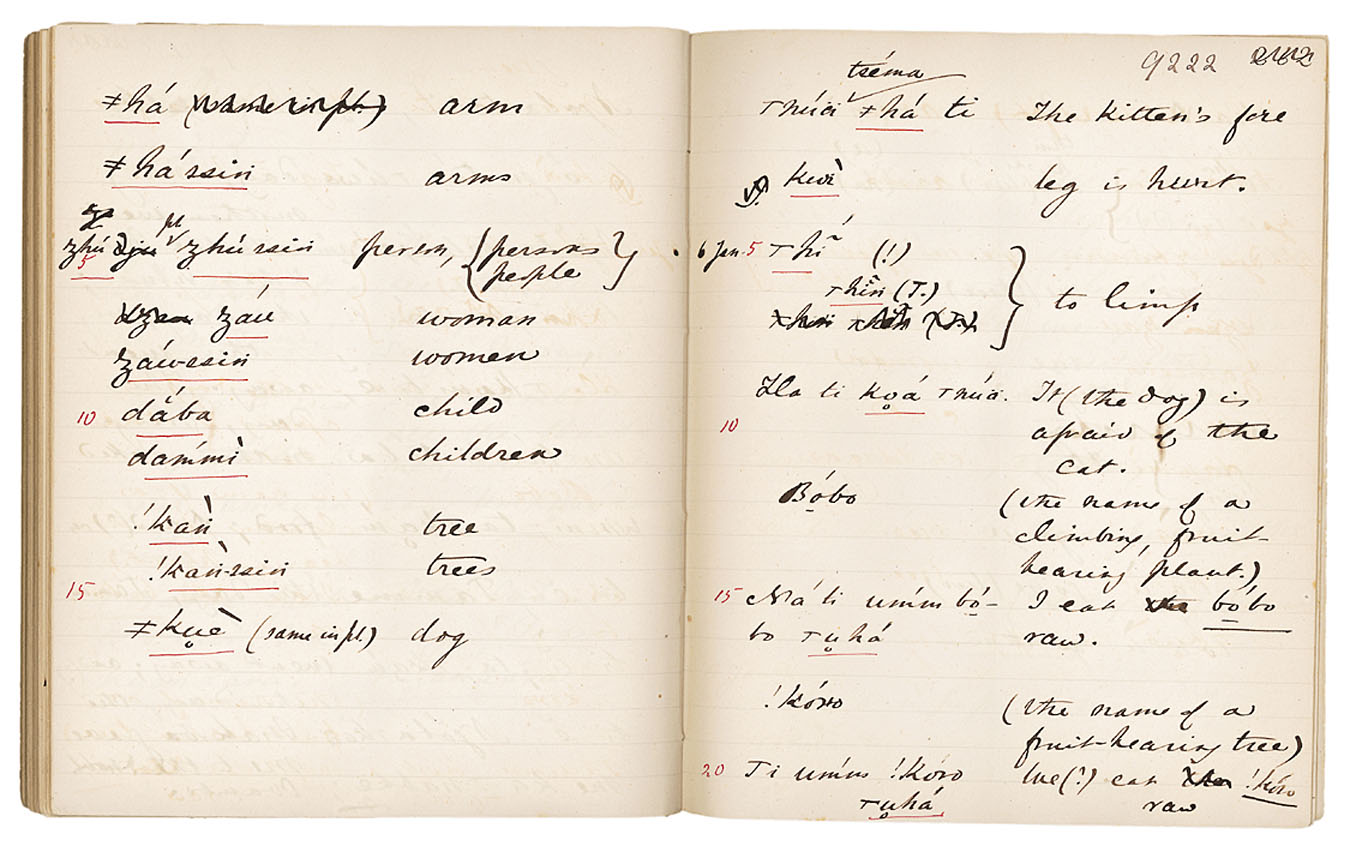 ǂhá (same in pl.) arm
ǂhá'ssin arms
pl.
zhú zhú ssin person, { persons
5 people }
záu woman
záu-ssin women
10 dába child
dam'mì child­ren
!kàn tree
!kàn-ssin trees
15
ǂku̥è (same in pl.) dog
9222
tséma
ꞱnúaꞮ ǂhá ti The kitten's fore
kwì leg is hurt.
6 Jan. 5 (!)
(T.) } to limp
Ha ti ko̥á It (the dog) is
10 afraid of the
cat.
Bóbo (the name of a
climbing, fruit-
bearing plant.)
15 Má ti um'm bó- I eat bóbo
bo raw.
!kóro (the name of a
fruit-bearing tree)
20 Ti um'm !kóro We (?) eat !kóro
raw